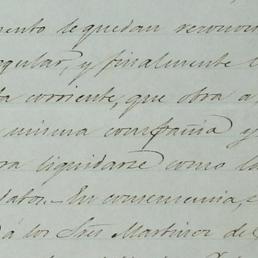 mento de quedan reconoci
egular, y finalmente l
ta corriente, que obra a
misma compañia y
ra liquidarse como la
datos.- En consecuencia,
á los Sres Martinez de